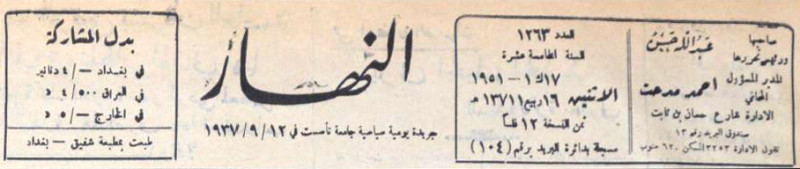 صاحبها
ورئيس تحريرها
عبد الله حسين
المدير المسؤول
المحامي
احمد مدحت
الادارة شارع حسان بن ثابت
صندوق البريد رقم ١٣
تلفون الادارة ٣٢٥٣ السكن ٦٣٠ جنوب
العدد ١٢٦٣
السنة الخامسة عشرة
١٧ ك ١ - ١٩٥١
الاثنين ١٦ ربيع ١ ١٣٧١ هـ
ثمن النسخة ١٢ فلساً
مسجلة بدائرة البريد برقم (١٠٤)
النهار
جريدة يومية سياسية جامعة تأسست في ١٢/٩/١٩٣٧
بدل المشاركة
في بغداد -/٤ دنانير
في العراق ٥٠٠/٤ د
في الخارج -/٥ د
طبعت بمطبعة شفيق - بغداد